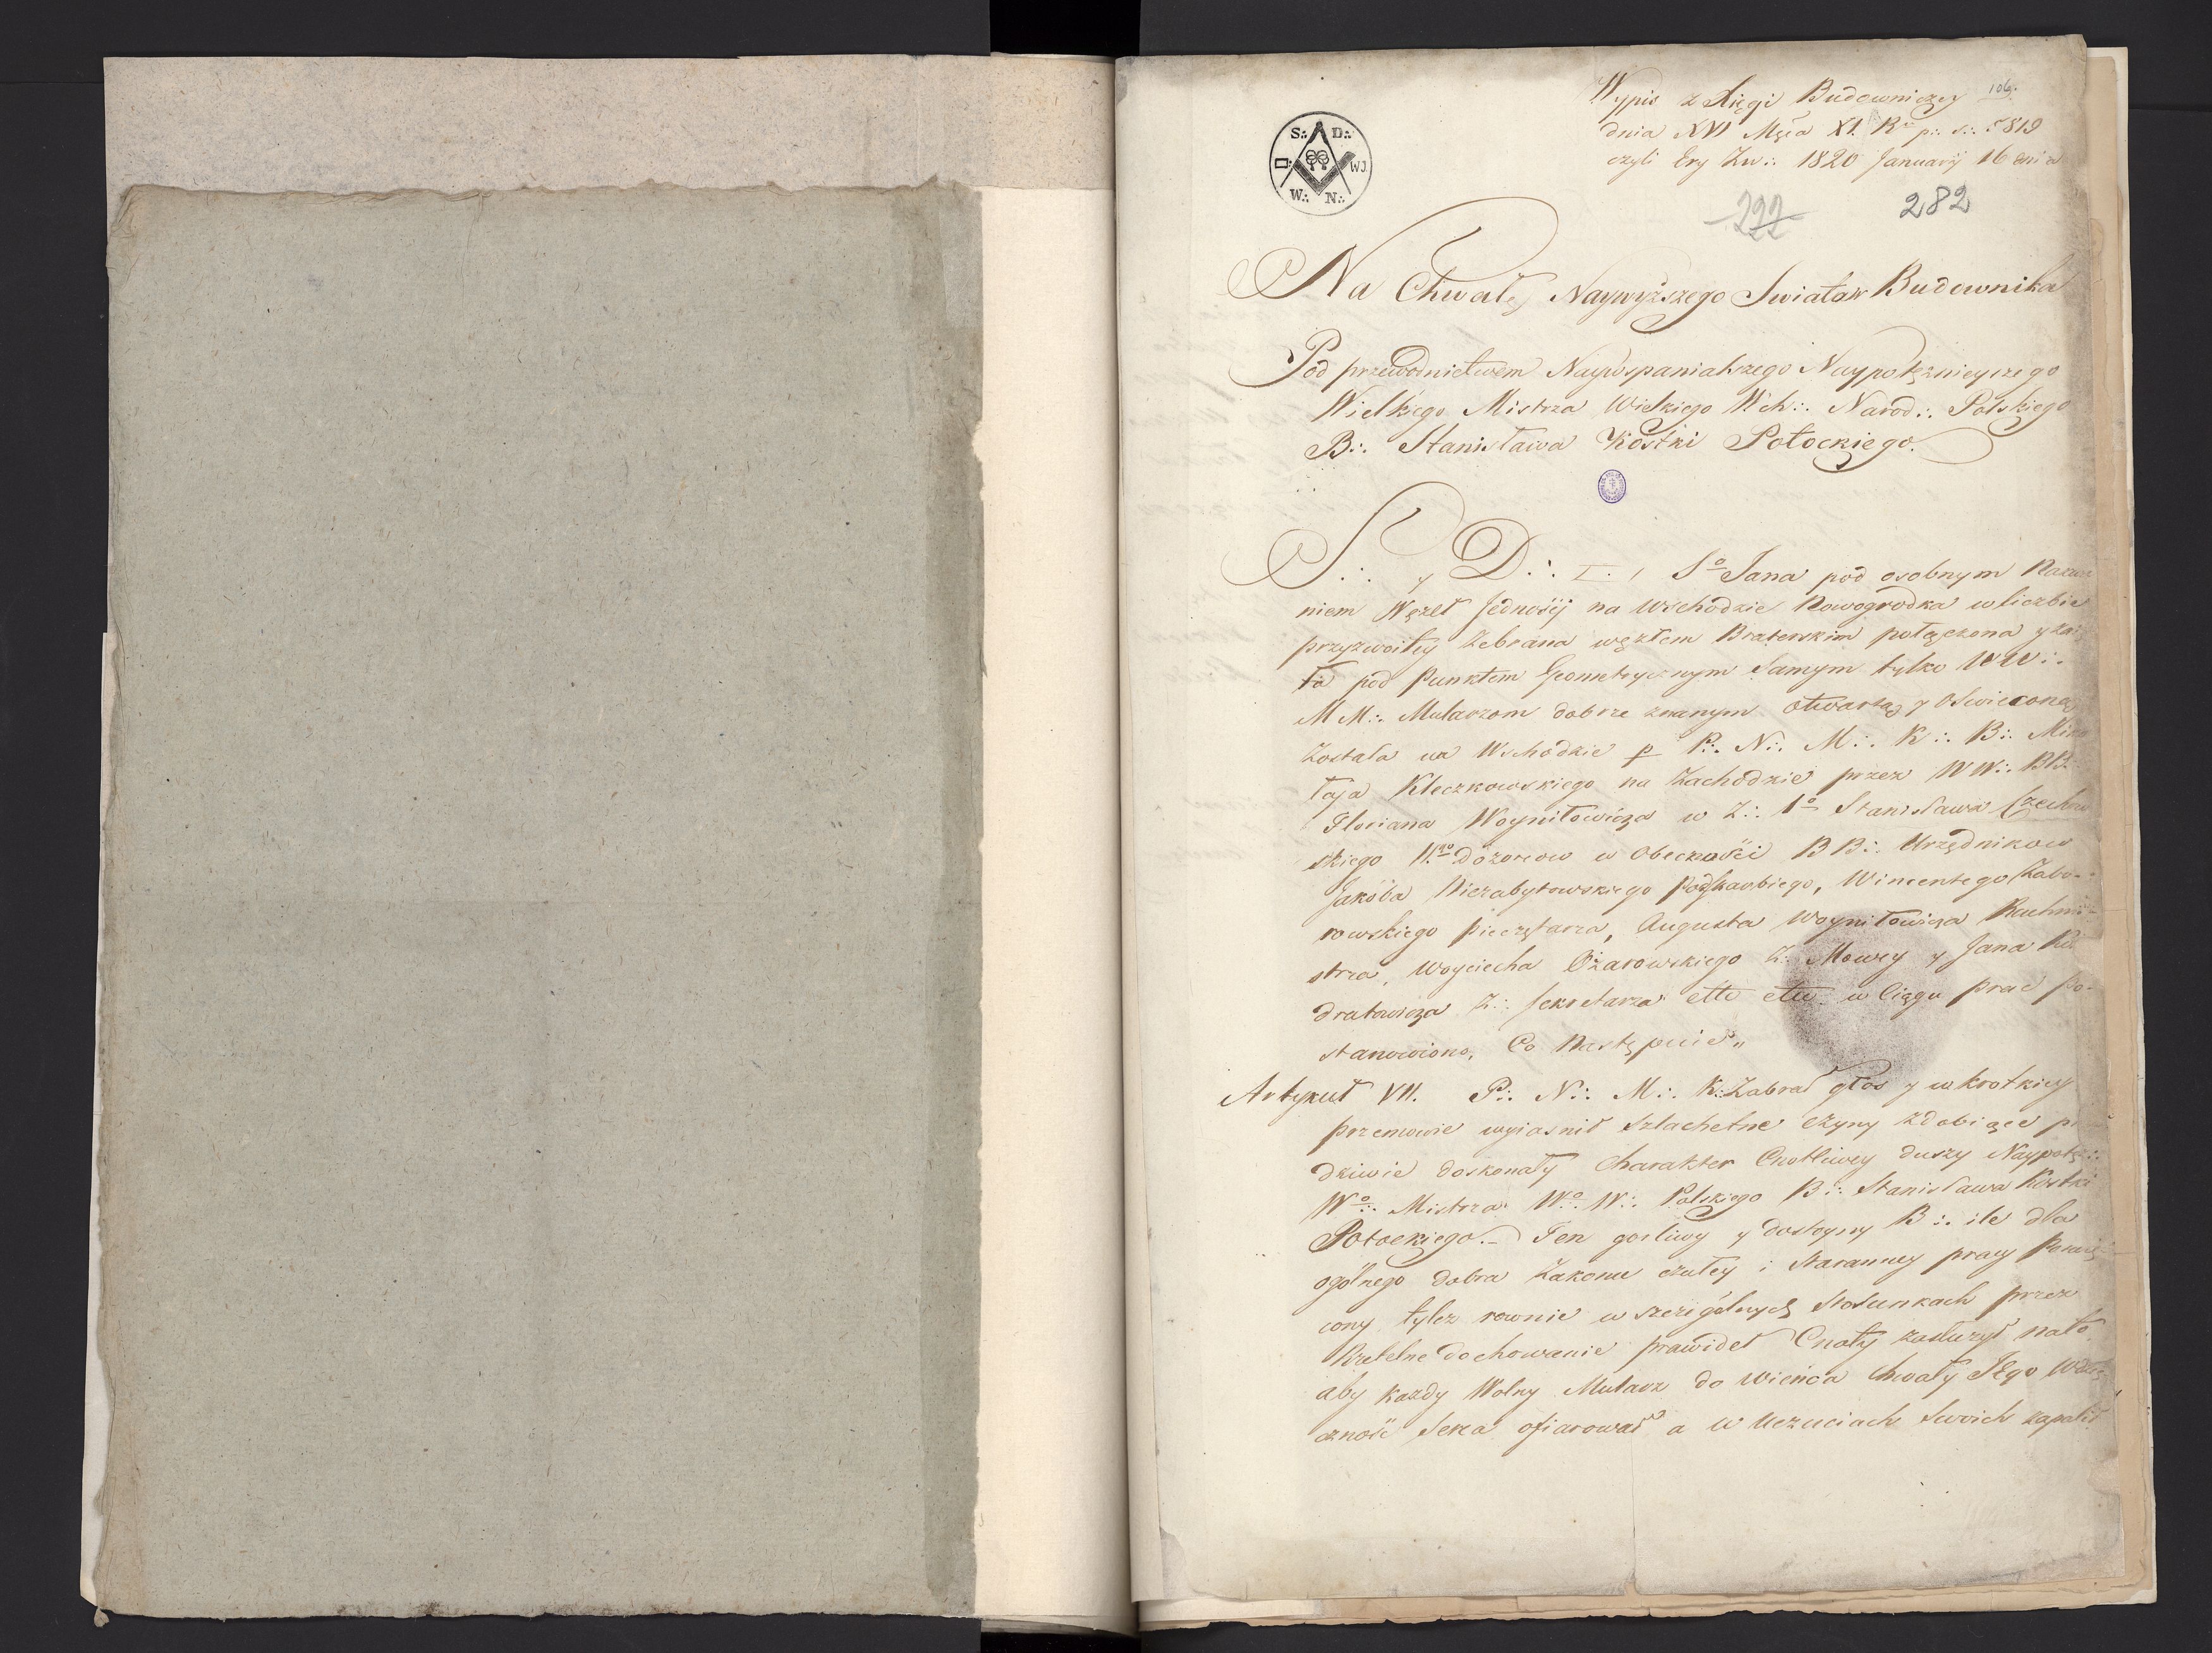 Wypis z Xięgi Budowniczey 106.
dnia XVI Mca XI. R p:. s:. 5819
czyli Ery Zw:. 1820 Januarij 16 dnia
222 282
S:. D:.
WJ.
W:. N:.
Na Chwałę Naywyższego Swiatow Budownika
Pod przewodnictwem Naywspanialszego Naypotężnieyszego
Wielkiego Mistrza Wielkiego Wch:. Narod:. Polskiego
B:. Stanisława Kostki Potockiego.
S:. y D:. S° Jana pod osobnym Nazwa
niem Węzeł Jednośći na Wschodzie Nowogrodka w liczbie
przyzwoitey Zebrana węzłem Braterskim połączona y
pod Punktem Geometrycznym Samym tylko WW:.
MM:. Mularzom dobrze znanym otwartą y Oswieconą
Została na Wschodzie p P:. N:. M:. K:. B:. Miko
łaja Kleczkowskiego na Zachodzie przez WW:. BB:.
Floriana Woyniłowicza w Z:. 1° Stanisława Czechow
skiego II.go dozorcow w Obecnośći BB:. Urzędnikow
Jakóba Niezabytowskiego Podskarbiego, Wincentego Zabo-
rowskiego pieczętarza, Augusta Woyniłowicza Rachmi-
strza, Woyciecha Ożarowskiego Z:. Mowcy y Jana
dratowicza Z:. Sekretarza etc etc w Ciągu prac po-
stanowiono, Co Następuie„
Artykuł VII. P:. N:. M:. K: Zabrał głos y w krotkiey
przemowie wyiasnił Szlachetne czyny zdobiące
dziwie doskonały Charakter Cnotliwey duszy Naypotę:.
W°:. Mistrza W°:. W:. Polskiego B:. Stanisława Kostki
Potockiego.– Ten gorliwy y dostoyny B:. ile dla
ogólnego dobra Zakonu czułey i Staranney pracy Poswię
cony tylez rownie w szczególnych Stosunkach przez
Rzetelne dochowanie prawideł Cnoty zasłużył nato
aby każdy Wolny Mularz do Wieńca Chwały Jego Wdzię
czność Serca ofiarował a w Uczuciach Swoich zapalił